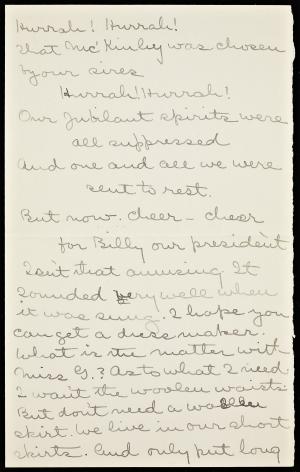 Hurrah! Hurrah!
that McKinley was chosen
by our sires
Hurrah! Hurrah!
Our Jubilant spirits were
all suppressed
And one and all we were
sent to rest.
But now. Cheer - cheer
for Billy our president
Isn't that amusing. It
sounded very well when
it was sung. I hope you
can get a dress maker.
What is the matter with
Miss G.? As to what I need.
I want the woolen waists.
But don't need a woolen
skirt. We live in our short
skirts. And only put long